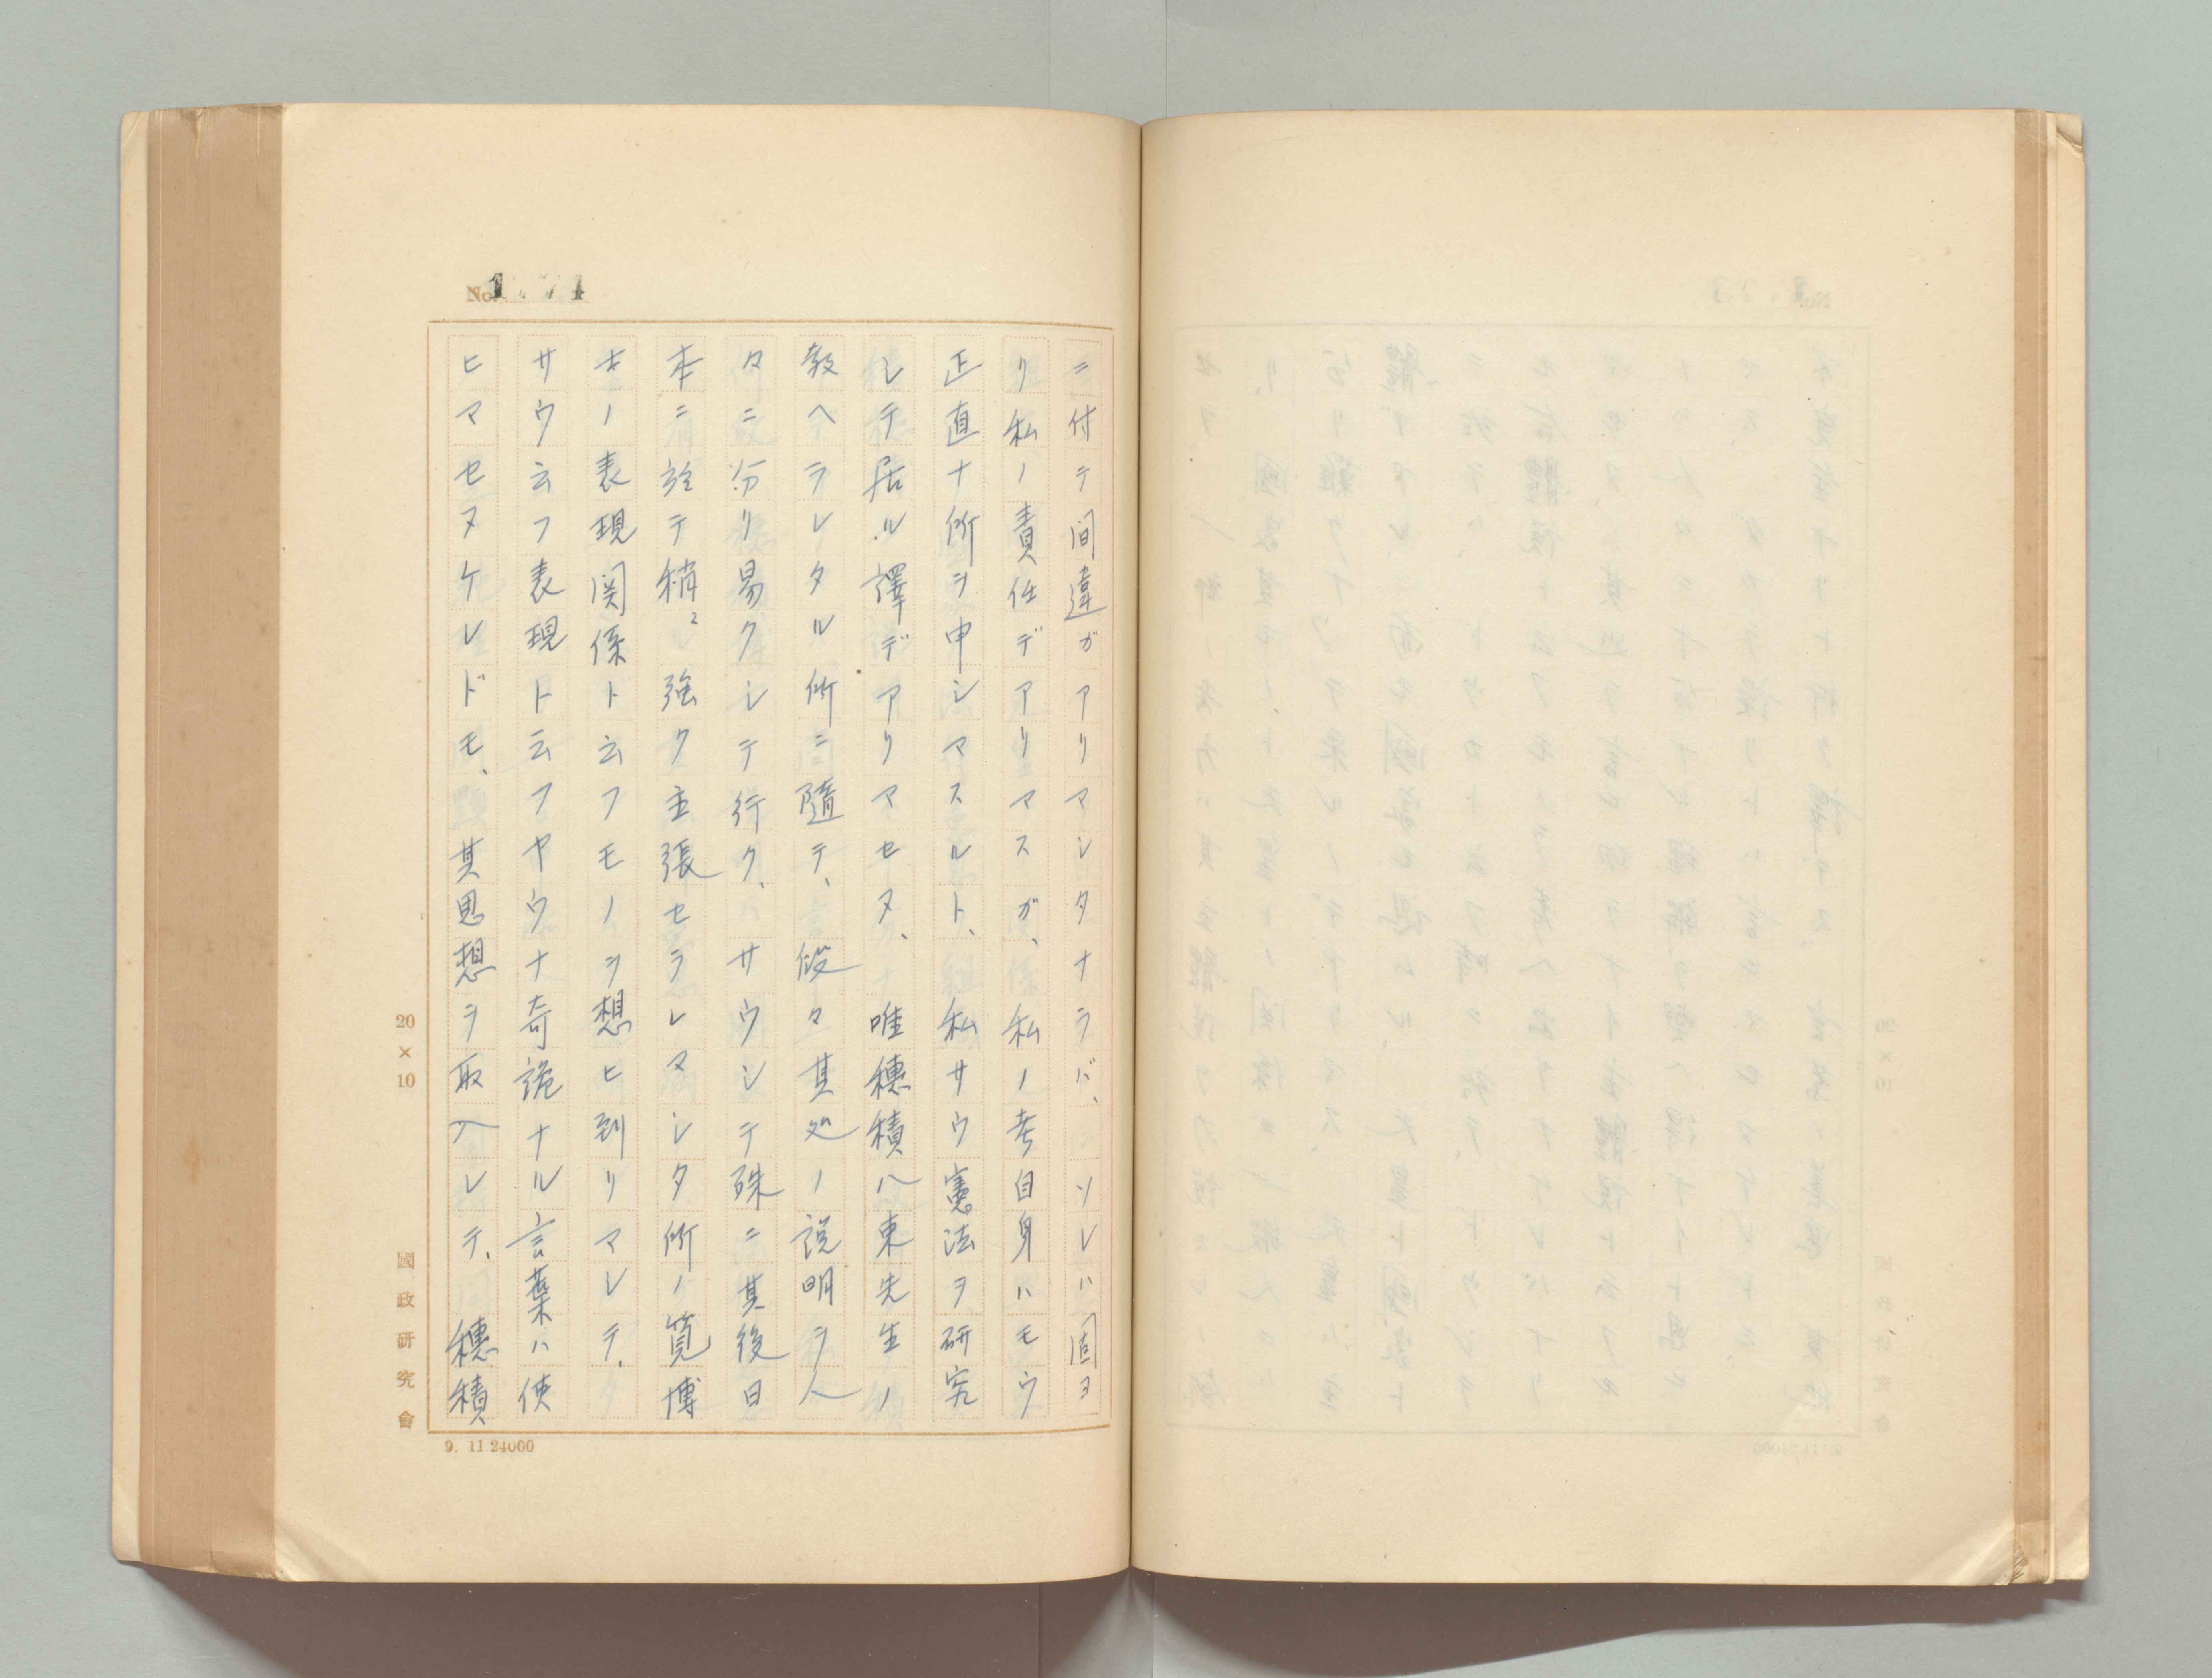 ニ付テ間違ガアリマシタナラバ、ソレハ固ヨ
リ私ノ責任デアリマスガ、私ノ考自身ハモウ
正直ナ所ヲ申シマスルト、私サウ憲法ヲ研究
シテ居ル譯デアリマセヌ、唯穗積八束先生ノ
教ヘラレタル所ニ隨テ、段々其処ノ説明ヲ人
々ニ分リ易クシテ行ク、サウシテ殊ニ其後日
本ニ於テ稍〻強ク主張セラレマシタ所ノ筧博
士ノ表現関係ト云フモノヲ想ヒ到リマシテ、
サウ云フ表現ト云フヤウナ奇詭ナル言葉ハ使
ヒマセヌケレドモ、其思想ヲ取入レテ、穗積
No.
20×10
國政研究會
9. 11 24000